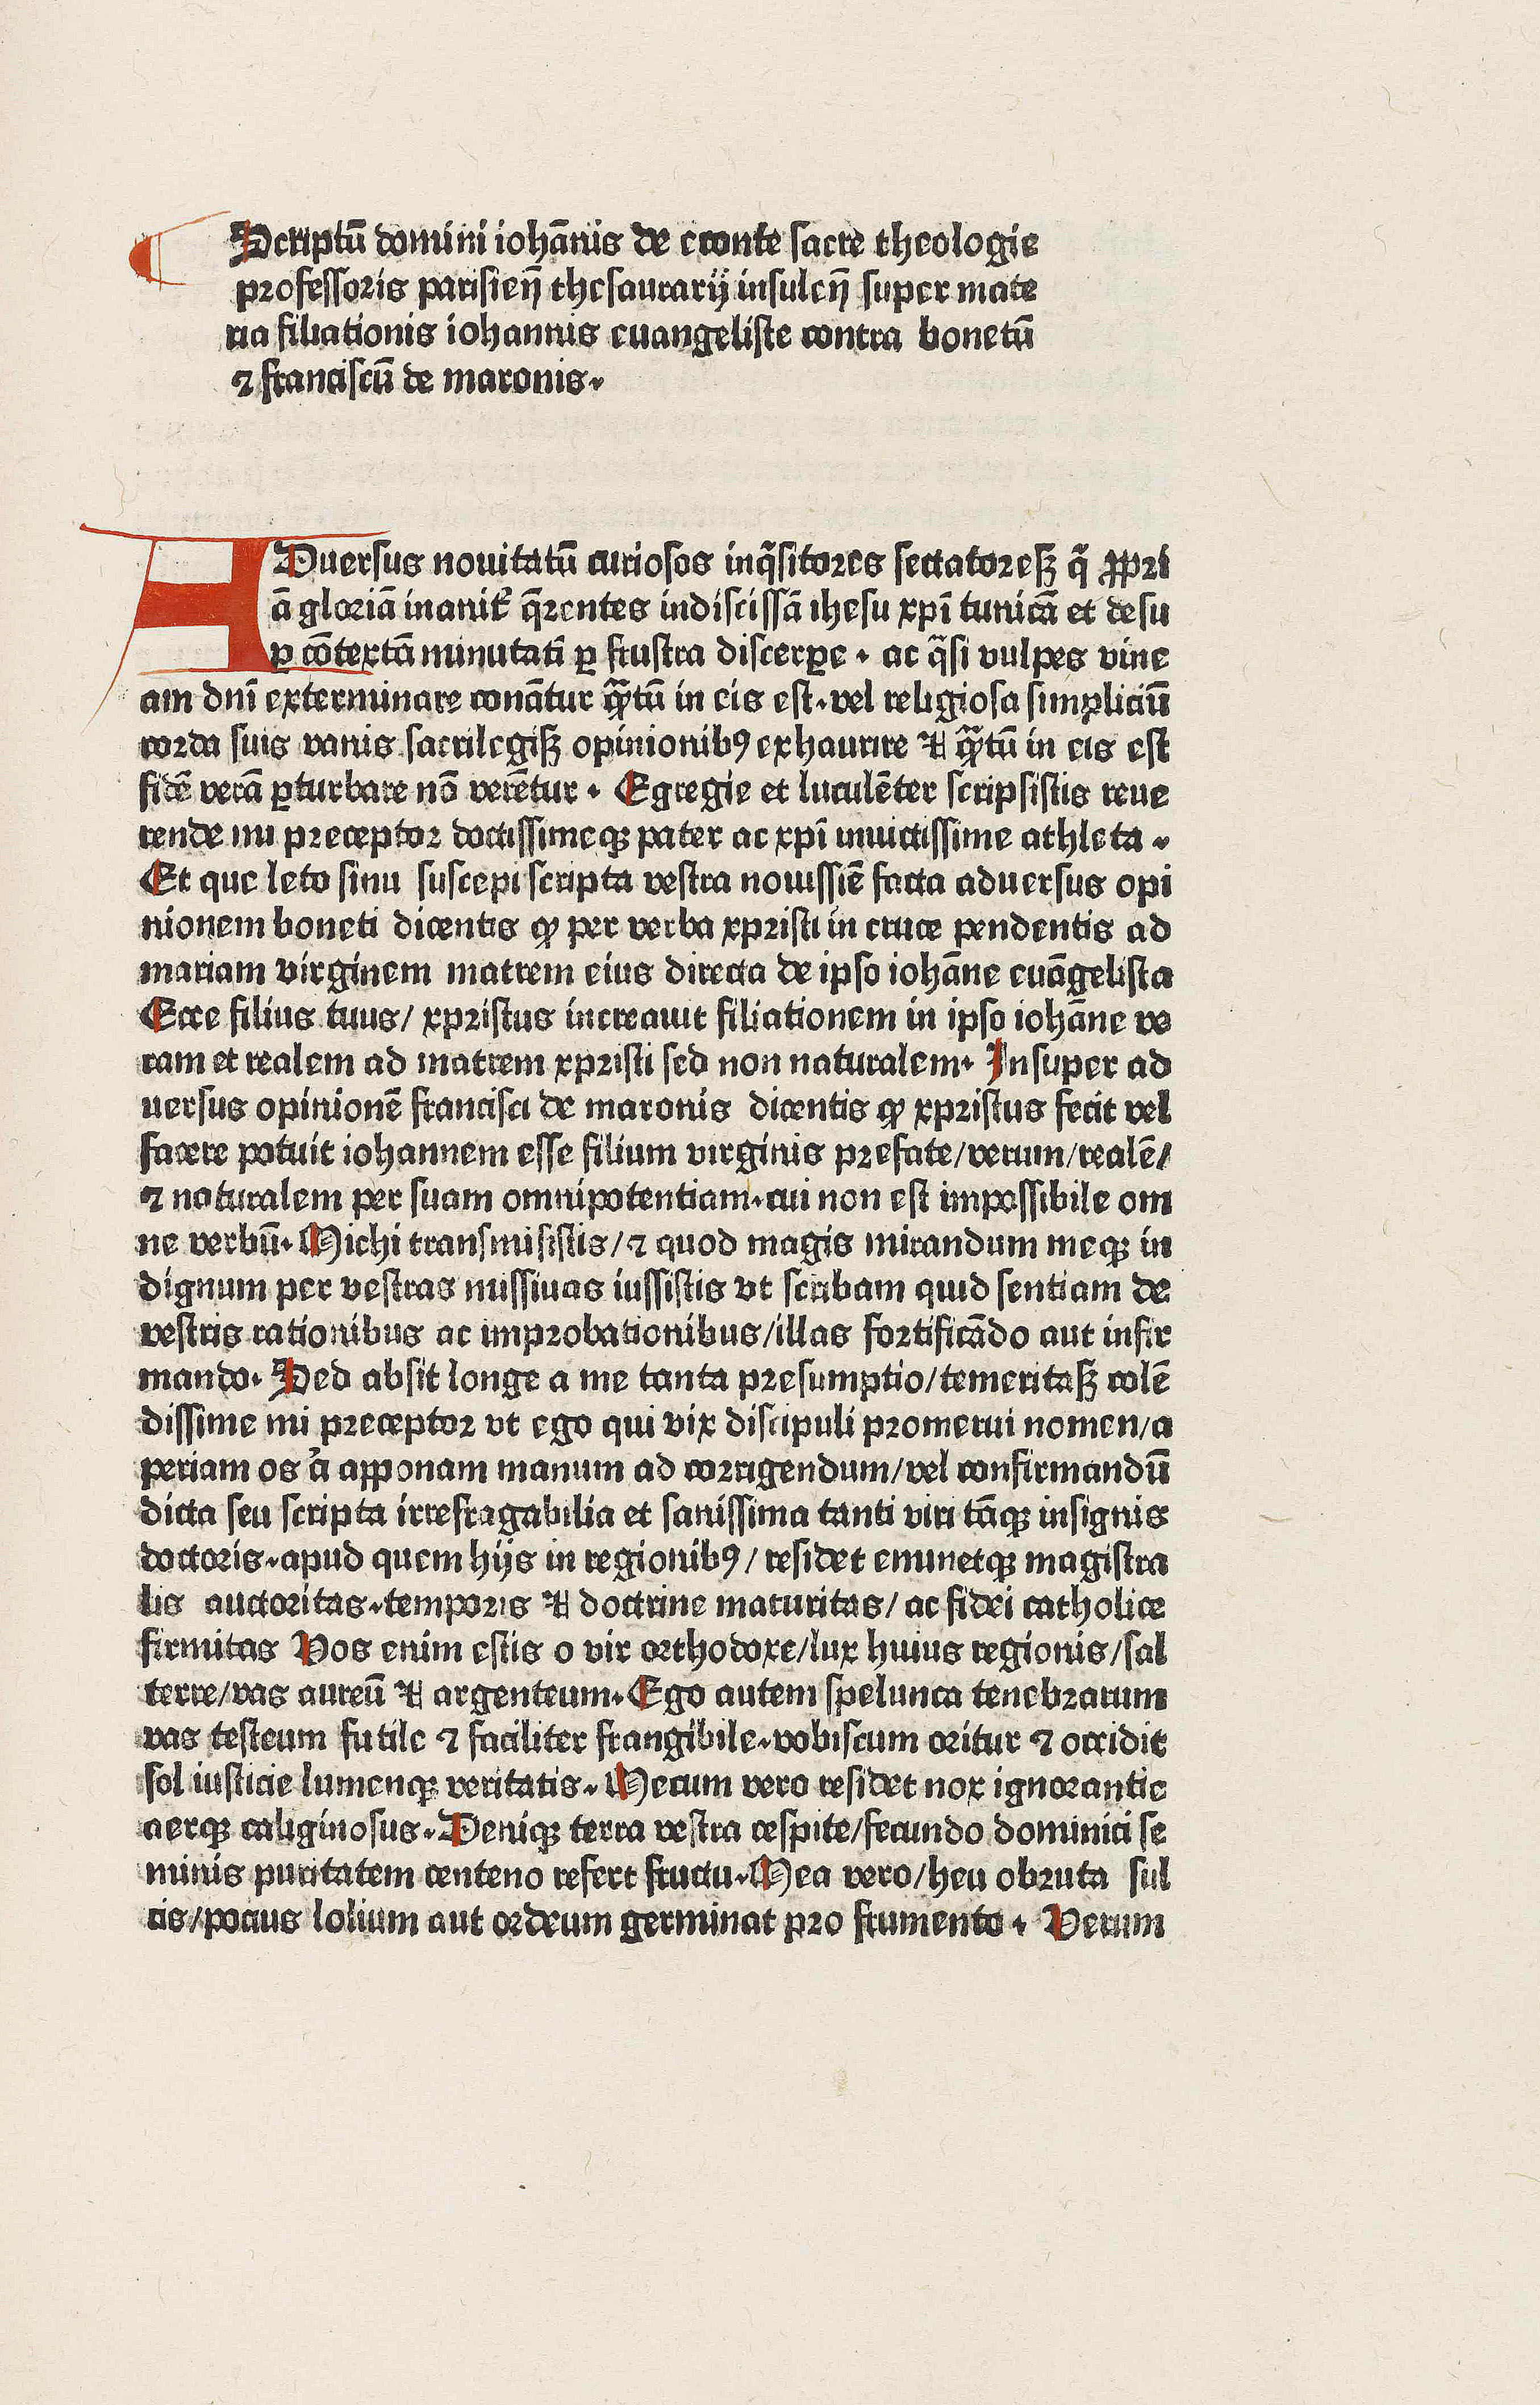 Scriptū domini iohānis de econte sacre theologie
professoris parisieñ thesaurarij insuleñ super mate
ria filiationis iohannis euangeliste contra bonetū
⁊ franciscū de maronis.
ADuersus nouitatū curiosos inq̄sitores sectatoresqꝫ q̄ ꝓpri
ā gloriā inanit̄ q̄rentes indiscissā ihesu xp̄i tunicā et desu
ꝑ cōtextā minutatī ꝑ frustra discerpe. ac q̄si vulpes vine
am dn̄i exterminare conātur q̄ꝫtū in eis est. vel religiosa simpliciū
corda suis vanis sacrilegisqꝫ opinionibꝰ exhaurire ⁊ q̄ꝫtū in eis est
fidē verā ꝑturbare nō verētur. Egregie et luculēter scripsistis reue
rende mi preceptor doctissimeqꝫ pater ac xp̄i inuictissime athleta.
Et que leto sinu suscepi scripta vestra nouissiē facta aduersus opi
nionem boneti dicentis ꝙ per verba xpristi in cruce pendentis ad
mariam virginem matrem eius directa de ipso iohāne euāgelista
Ecce filius tuus/ xpristus increauit filiationem in ipso iohāne ve
ram et realem ad matrem xpristi sed non naturalem. Insuper ad
uersus opinionē francisci de maronis dicentis ꝙ xpristus fecit vel
facere potuit iohannem esse filium virginis prefate/verum/realē/
⁊ naturalem per suam omnipotentiam. cui non est impossibile om
ne verbū. Michi transmisistis/⁊ quod magis mirandum meqꝫ in
dignum per vestras missiuas iussistis vt scribam quid sentiam de
vestris rationibus ac improbationibus/illas fortificādo aut infir
mando. Sed absit longe a me tanta presumptio/temeritasqꝫ colē
dissime mi preceptor vt ego qui vix discipuli promerui nomen/a
periam os a apponam manum ad corrigendum/vel confirmandū
dicta seu scripta irrefragabilia et sanissima tanti viri tāqꝫ insignis
doctoris. apud quem hijs in regionibꝰ/ residet eminetqꝫ magistra
lis auctoritas. temporis ⁊ doctrine maturitas/ ac fidei catholice
firmitas Vos enim estis o vir orthodoxe/lux huius regionis/sal
terre/vas aureū ⁊ argenteum. Ego autem spelunca tenebrarum
vas testeum futile ⁊ faciliter frangibile. vobiscum oritur ⁊ occidit
sol iusticie lumenqꝫ veritatis. Mecum vero residet nox ignorantie
aerqꝫ caliginosus. Deniqꝫ terra vestra cespite/fecundo dominici se
minis puritatem centeno refert fructu. Mea vero/heu obruta sul
cis/pocius lolium aut ordeum germinat pro frumento. Verum